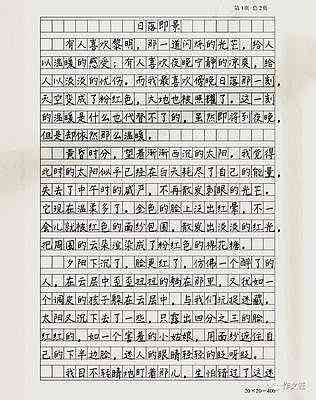 第1页·总2页
日落即景
有人喜欢黎明，那一道闪烁的光芒，给人
以温暖的感受；有人喜欢夜晚宁静的凉爽，给人
以淡淡的忧伤。而我最喜欢傍晚日落那一刻，
天空变成了粉红色，大地也被照耀了，这一刻
的温暖是什么也代替不了的。虽然即将到夜晚，
但是却依然那么温暖。
黄昏时分，望着渐渐西沉的太阳，我觉得
此时的太阳似乎已经在白天耗尽了自己的能量，
失去了中午时的威严，不再散发刺眼的光芒。
它现在温柔多了，金色的脸上泛出红晕，不一
会儿就被红色的面纱包围，散发出淡淡的红光，
把周围的云朵渲染成了粉红色的棉花糖。
夕阳下沉了，脸更红了，仿佛一个醉了的
人，在云层中歪歪扭扭的躺在那里，又犹如一
个调皮的孩子躲在云层中，与我们玩捉迷藏。
太阳又沉下去了一些，只露出四分之三的脸，
红红的，如一个害羞的小姑娘，用面纱遮住自
己的下半边脸，迷人的眼睛轻轻的眨呀眨。
我目不转睛地盯着那儿，生怕错过了这迷
20×20=400